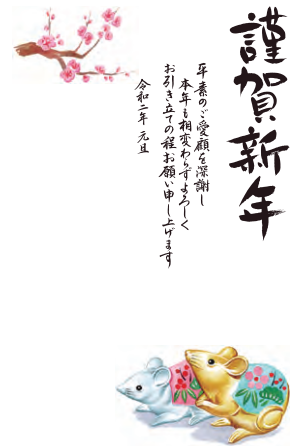 謹賀新年
平素のご愛顧を深謝し
本年も相変わらずよろしく
お引き立ての程お願い申し上げます
令和二年 元旦